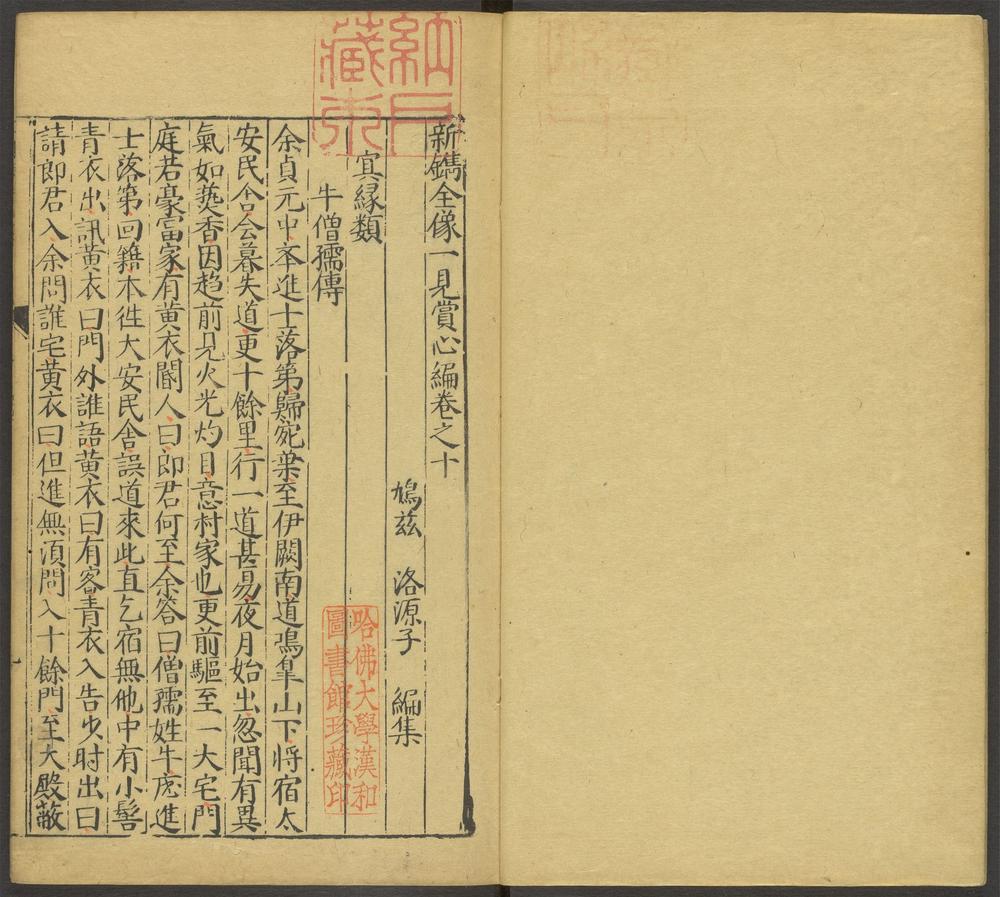 新鐫全像一見賞心編卷之十
鳩兹　洛源子　編集
冥緣類
牛僧孺傳
余貞元中夲進士落第歸宛葉至伊闕南道鳴臯山下將宿大
安民舍会暮失道更十餘里行一道甚易夜月始出忽聞有異
氣如𦶟香因趋前見火光灼目意村家也更前驅至一大宅門
庭若豪富家有黄衣閽人曰郎君何至余答曰僧孺姓牛应進
士落第回籍本徃大安民舍誤道來此直乞宿無他中有小髻
青衣出訊黄衣曰門外誰語黄衣曰有客青衣入告少时出曰
請郎君入余問誰宅黄衣曰但進無湏問入十餘門至大殿蔽
納戸藏本
哈佛大學漢和圖書館珍藏印